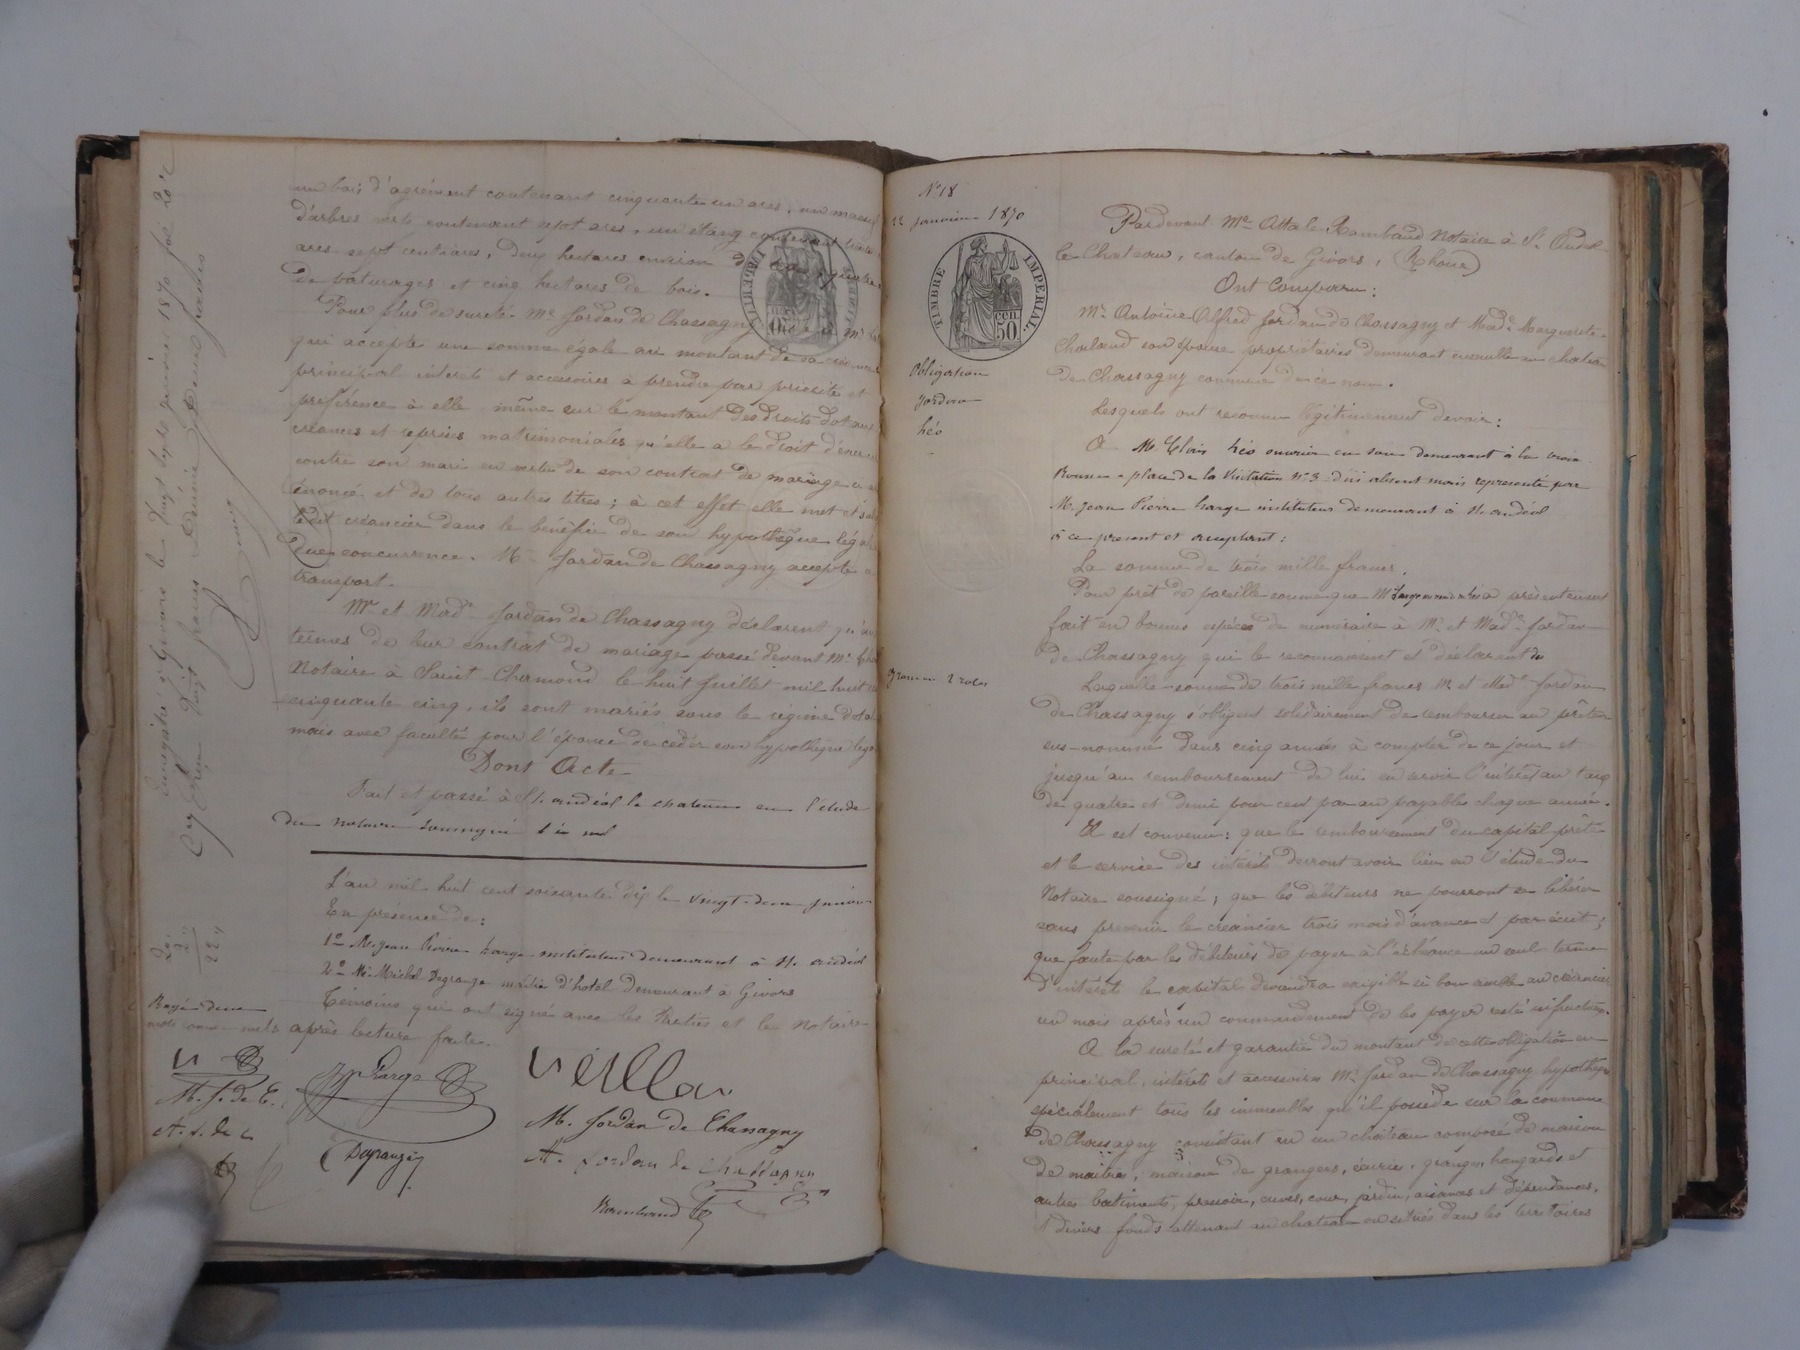 un bois d'agrément contenant cinquante un ares, un massif
d'arbres verts contenant sept ares, un étang contenant trente
ares sept centiares, deux hectares environ
de pâturages et cinq hectares de bois.
Pour plus de sureté Me Jordan de Chassagny
qui accepte une somme égale au montant de sa créance
principal intérêts et accessoires à prendre par priorité et
préférence à elle même sur le montant des droits dotaux
créances et reprises matrimoniales qu'elle a le droit d'exercer
contre son mari en vertu de son contrat de mariage ci-a
énoncé et de tous autres titres ; à cet effet elle met et s
ledit créancier dans le bénéfice de son hypothèque légale
due concurrence. M. Jordan de Chassagny accepte ce
transport.
Mr et Made Jordan de Chassagny déclarent qu'aux
termes de leur contrat de mariage passé devant Me
Notaire à Saint-Chamond le huit Juillet mil huit ce
cinquante cinq, ils sont mariés sous le régime dotal
mais avec faculté pour l'épouse de céder son hypothèque légale
Dont Acte
Fait et passé à St. andéol le chateau en l'étude
du notaire soussigné
L'an mil huit cent soixante dix le vingt-deux janvier
En présence de :
1o M. Jean Pierre Large instituteur demeurant à St. andéol
2o M. Michel Degrange maître d'hotel demeurant à Givors
Témoins qui ont signé avec les Parties et le Notaire
après lecture faite.
Rayé deux
mots comme nuls
JP Large
veilla
M. J. de C.
M. Jordan de Chassagny
A. J. de C
A. Jordan de Chassagny
Degrange
Rambaud
Enregistré à Givors le vingt sept janvier 1870 fol 20
Reçu vingt francs Décime Deux francs
20.
2.
22 "
No 18
22 janvier 1870
TIMBRE IMPERIAL.
50 cen
Obligation
Jordan
Léo
Grosse en 2 roles
Pardevant Me Attale Rambaud Notaire à St. Andéol
le Chateau, canton de Givors, (Rhône)
Ont Comparu :
Mr Antoine Alfred Jordan de Chassagny et Made Marguerite
son épouse propriétaires demeurant ensemble au chateau
de Chassagny commune de ce nom.
Lesquels ont reconnu légitimement devoir :
A M. Léo ouvrier en soie demeurant à la croix
Rousse place de la Visitation No 3 d'ici absent mais représenté par
M. Jean Pierre Large instituteur demeurant à St. andéol
à ce présent et acceptant :
La somme de trois mille francs.
Pour prêt de pareille somme que M. Large a présentement
fait en bonnes espèces de numéraire à Mr. et Made Jordan
de Chassagny qui le reconnaissent et déclarent
Laquelle somme de trois mille francs Mr et Made Jordan
de Chassagny s'obligent solidairement de rembourser au prêteur
sus-nommé dans cinq années à compter de ce jour et
jusqu'au remboursement de lui en servir l'intérêt au taux
de quatre et demi pour cent par an payables chaque année.
Il est convenu : que le remboursement du capital prêté
et le service des intérêts devront avoir lieu en l'étude du
Notaire soussigné ; que les débiteurs ne pourront se libérer
sans prévenir le créancier trois mois d'avance et par écrit ;
que faute par les débiteurs de payer à l'échéance un seul terme
d'intérêt le capital deviendra exigible si bon semble au créancier
un mois après un commandement de les payer resté infructueux.
A la sureté et garantie du montant de cette obligation en
principal, intérêts et accessoires Mr. Jordan de Chassagny hypothèque
spécialement tous les immeubles qu'il possède sur la commune
de Chassagny consistant en un chateau composé de maison
de maîtres, maison de grangers, écuries, granges, hangards et
autres batiments, pressoir, cuves, cour, jardin, aisances et dépendances,
divers fonds attenant au chateau ou situés dans les territoires